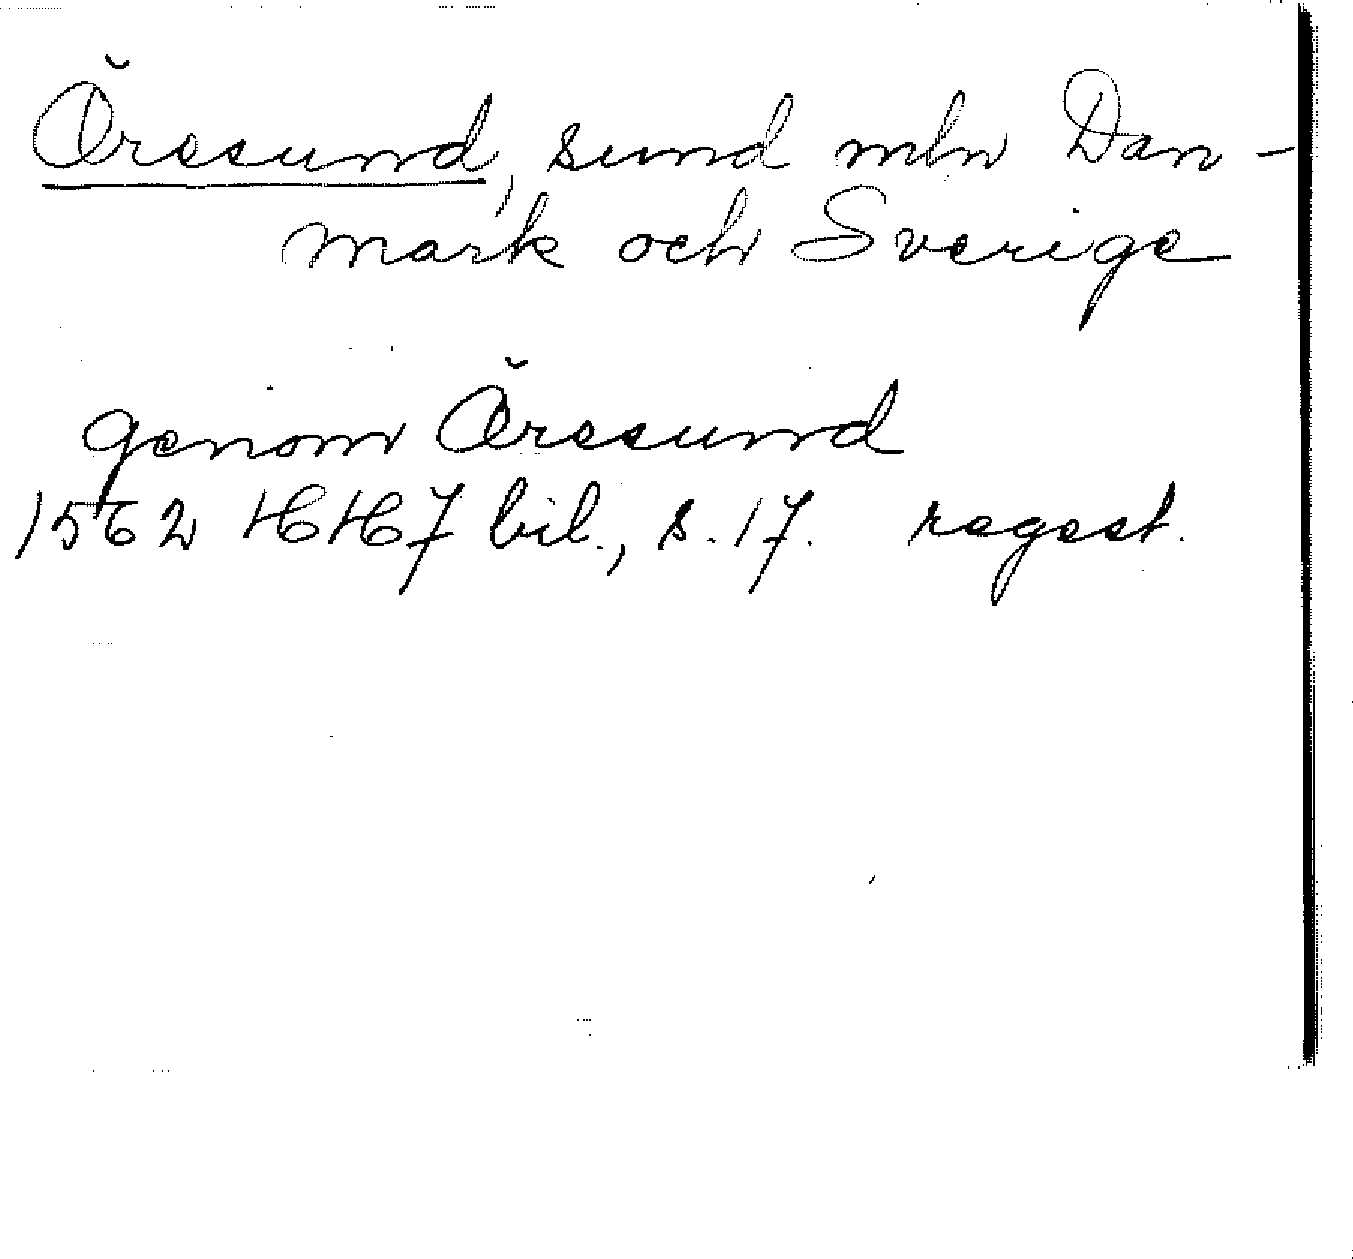 Öresund, sund mln Dan-
mark och Sverige
genom Öresund
1562 HH 7 bil., s. 17. regest.